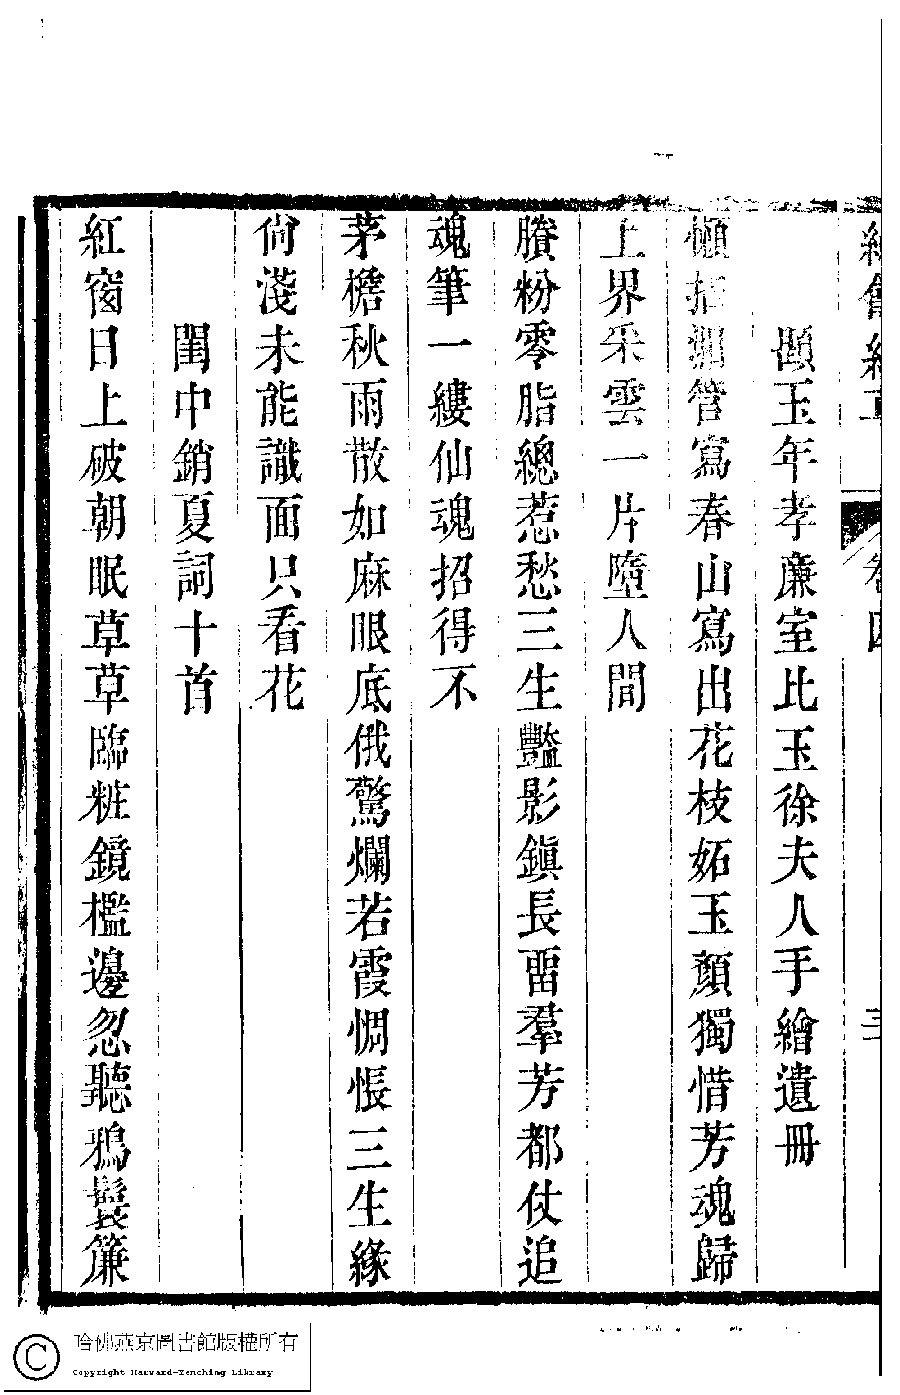 卷四
三
題玉年孝廉室比玉徐夫人手繪遺冊
懶拈湘管寫春山寫出花枝妬玉顏獨惜芳魂歸
上界采雲一片墮人間
賸粉零脂總惹愁三生豔影鎮長畱羣芳都仗追
魂筆一縷仙魂招得不
茅檐秋雨散如麻眼底俄驚爛若霞惆悵三生緣
尙淺未能識面只看花
閨中銷夏詞十首
紅窗日上破朝眠草草臨粧鏡檻邊忽聽鴉鬟簾
哈佛燕京圖書館版權所有
Copyright Harvard-Yenching Library